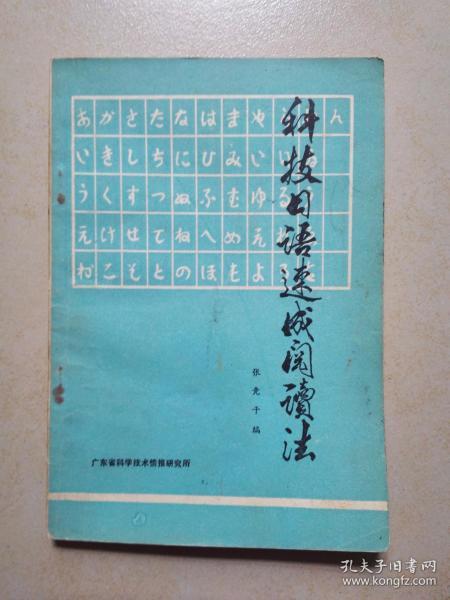 あかさたなはまや ん
いきしちにひみい
うくすつぬふむゆる
えけせてねへめえ
おこそとのほもよ
科技日语速成阅讀法
张竞干编
广东省科学技术情报研究所
孔夫子旧书网
www.kongfz.com